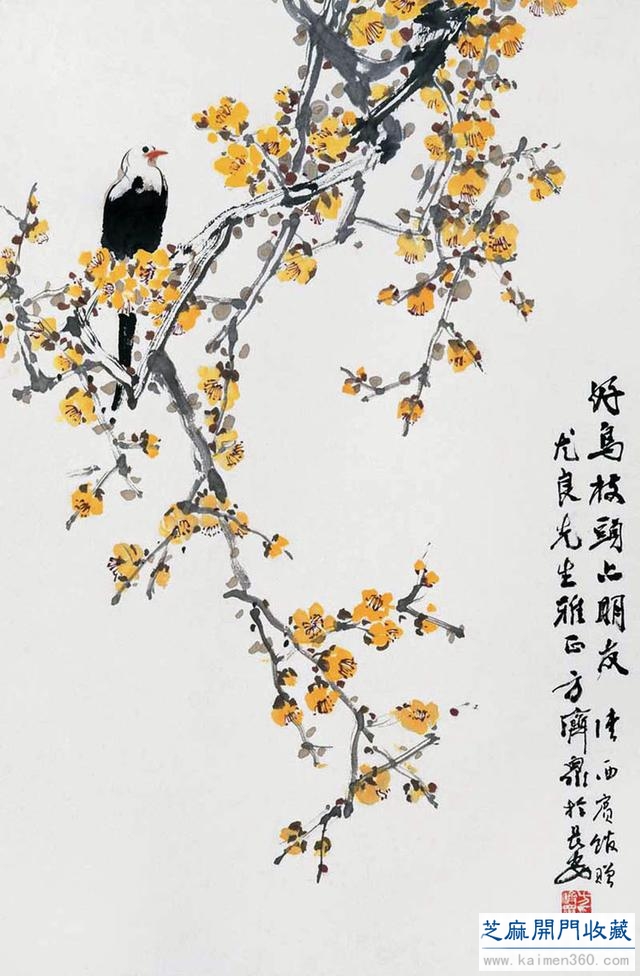 好鳥枝頭亦朋友 陝西賓館贈
尤良先生雅正 方濟衆於長安
芝麻開門收藏
www.kaimen360.com